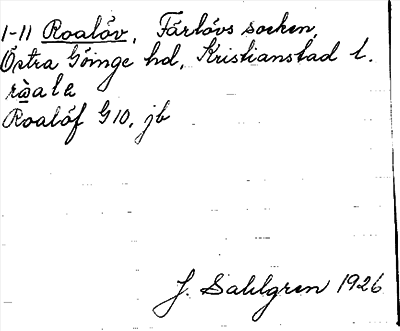 1-11 Roalöv, Färlövs socken,
Östra Göinge hd, Kristianstad l.
ròale
Roalöf G10, jb
J. Sahlgren 1926